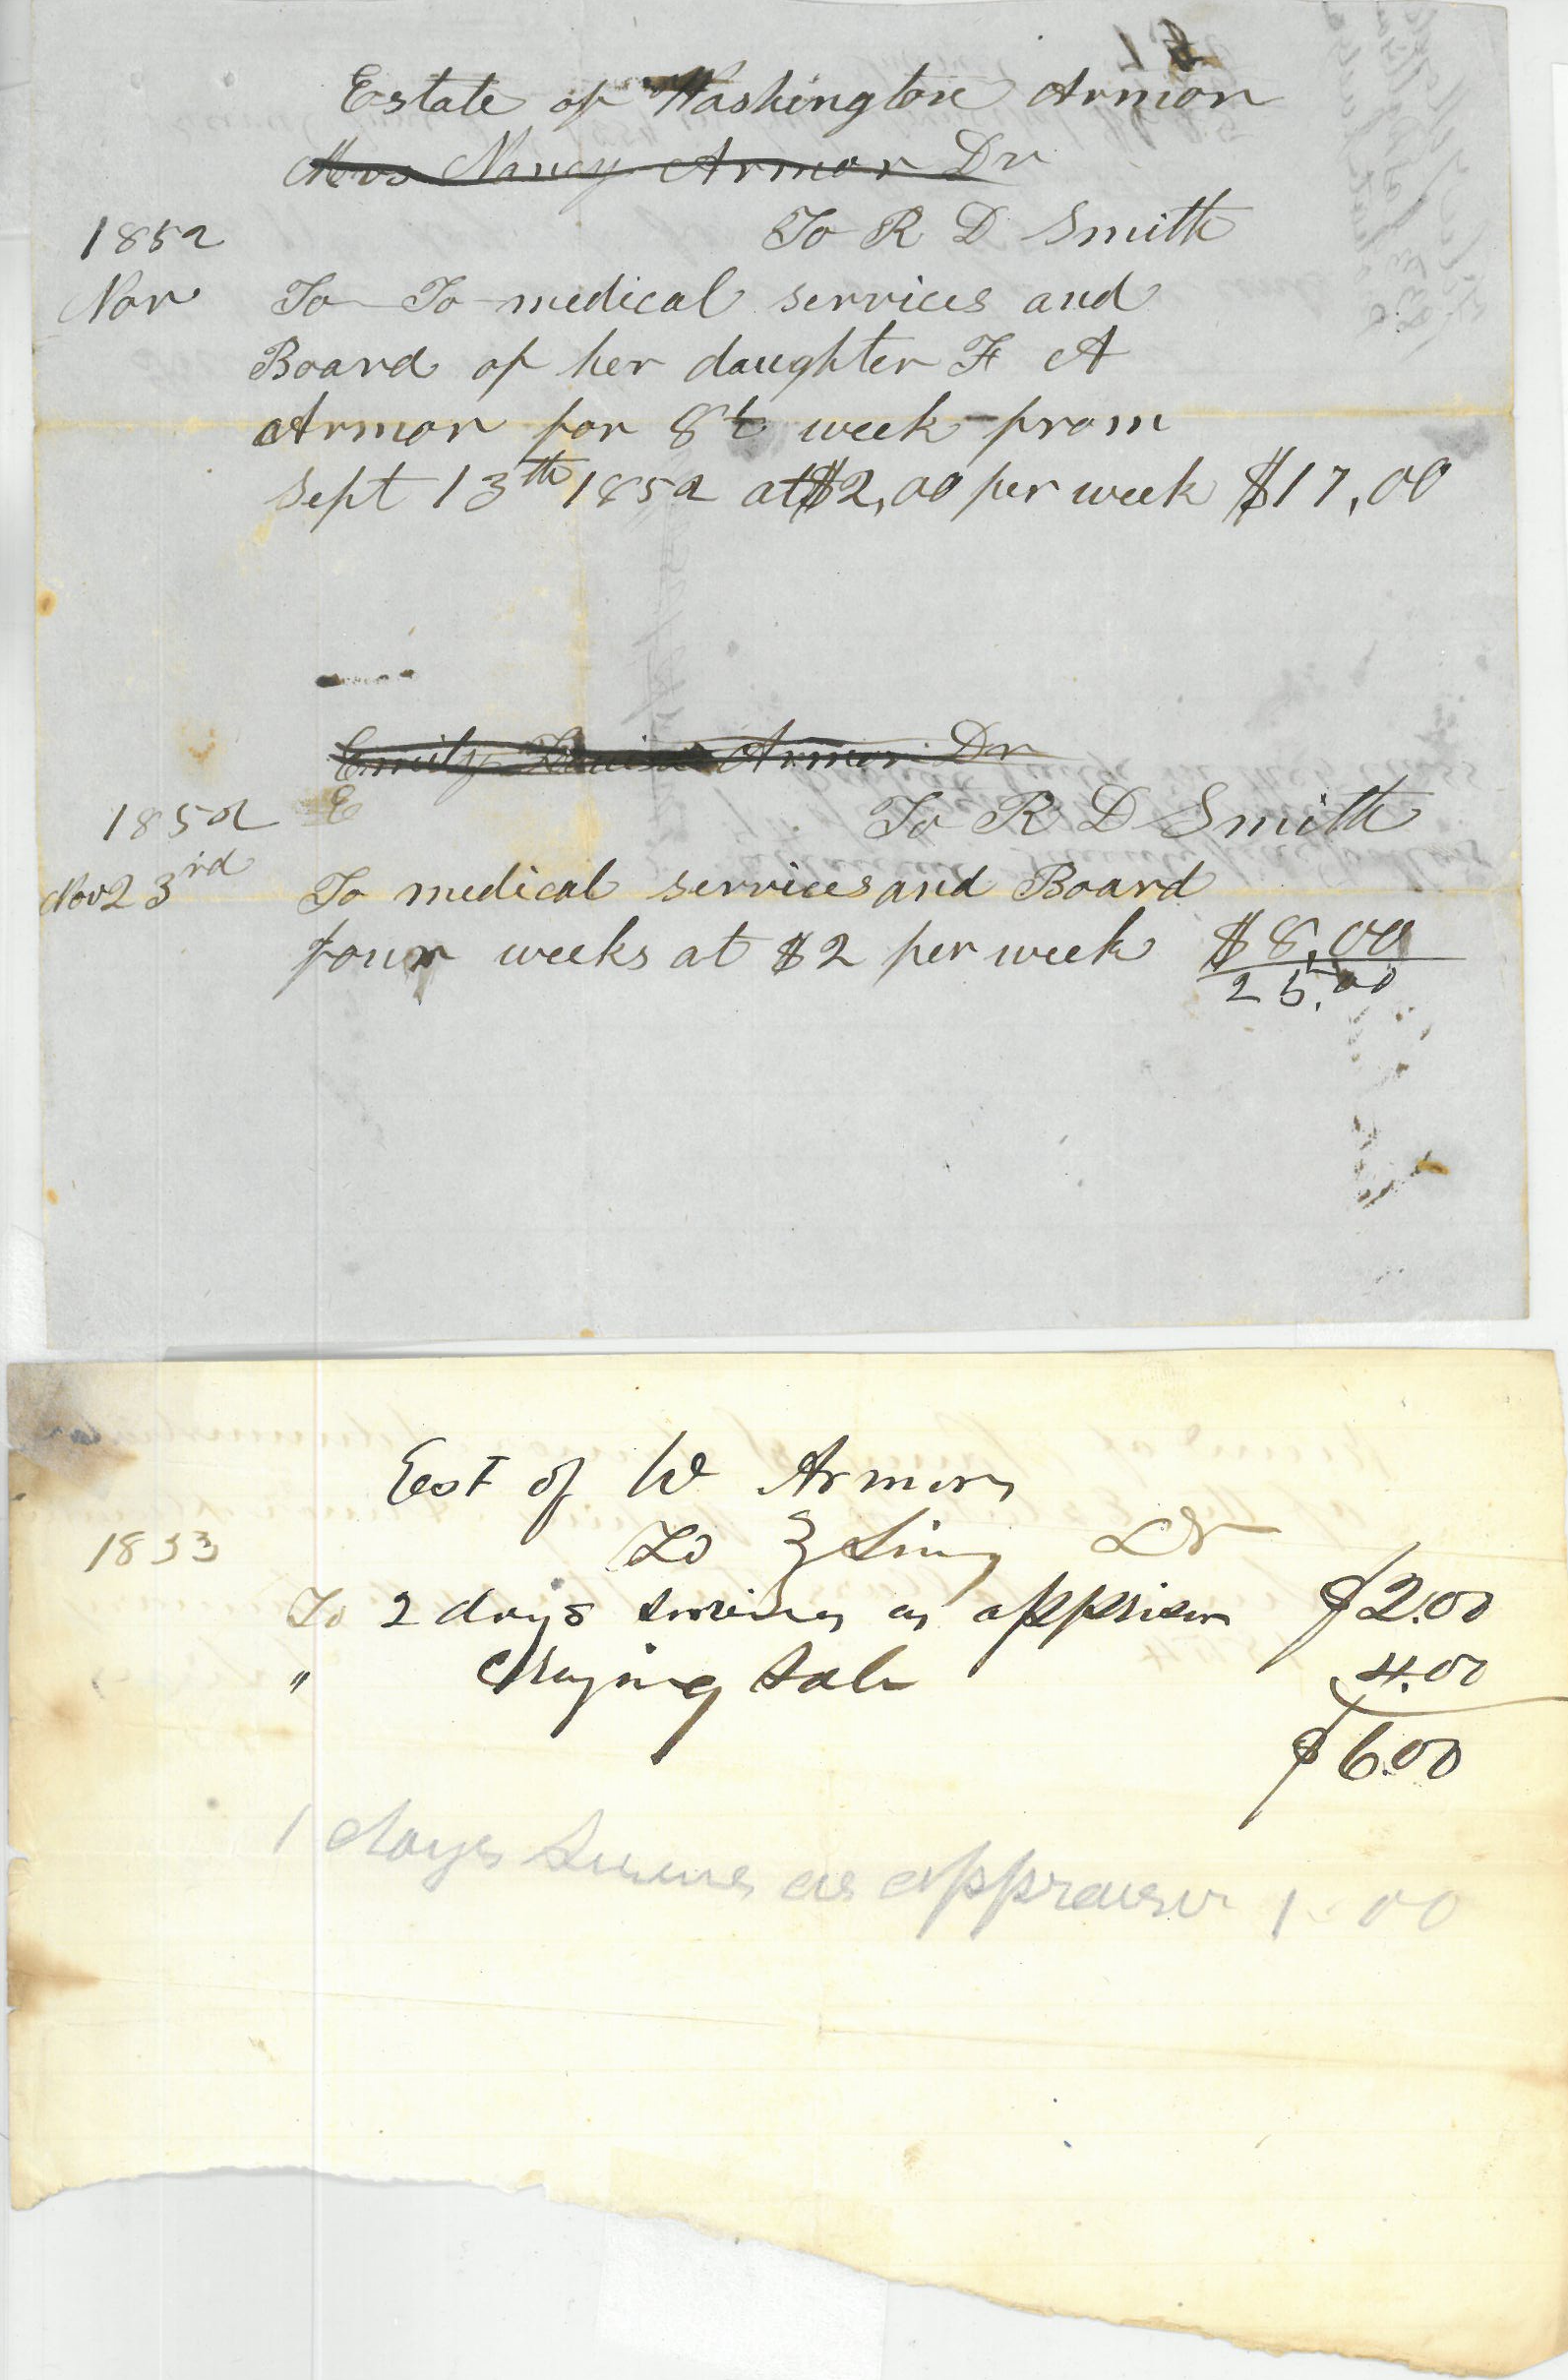 Estate of Washington Armor
Mrs Nancy Armor Dr
1852 To R D Smith
Nov To To medical services and
Board of her daughter F A
Armor for 8½ week from
Sept 13th 1852 at $2,00 per week $17,00
Emily Armor Dr
E
1852 To R D Smith
Nov 23rd To medical services and Board
four weeks at $2 per week $8,00
25,00
Est of W Armor
1853 To Dr
To 2 days services as appriser $2.00
" Crying Sale 4.00
$6.00
1 days as appraiser 1.00